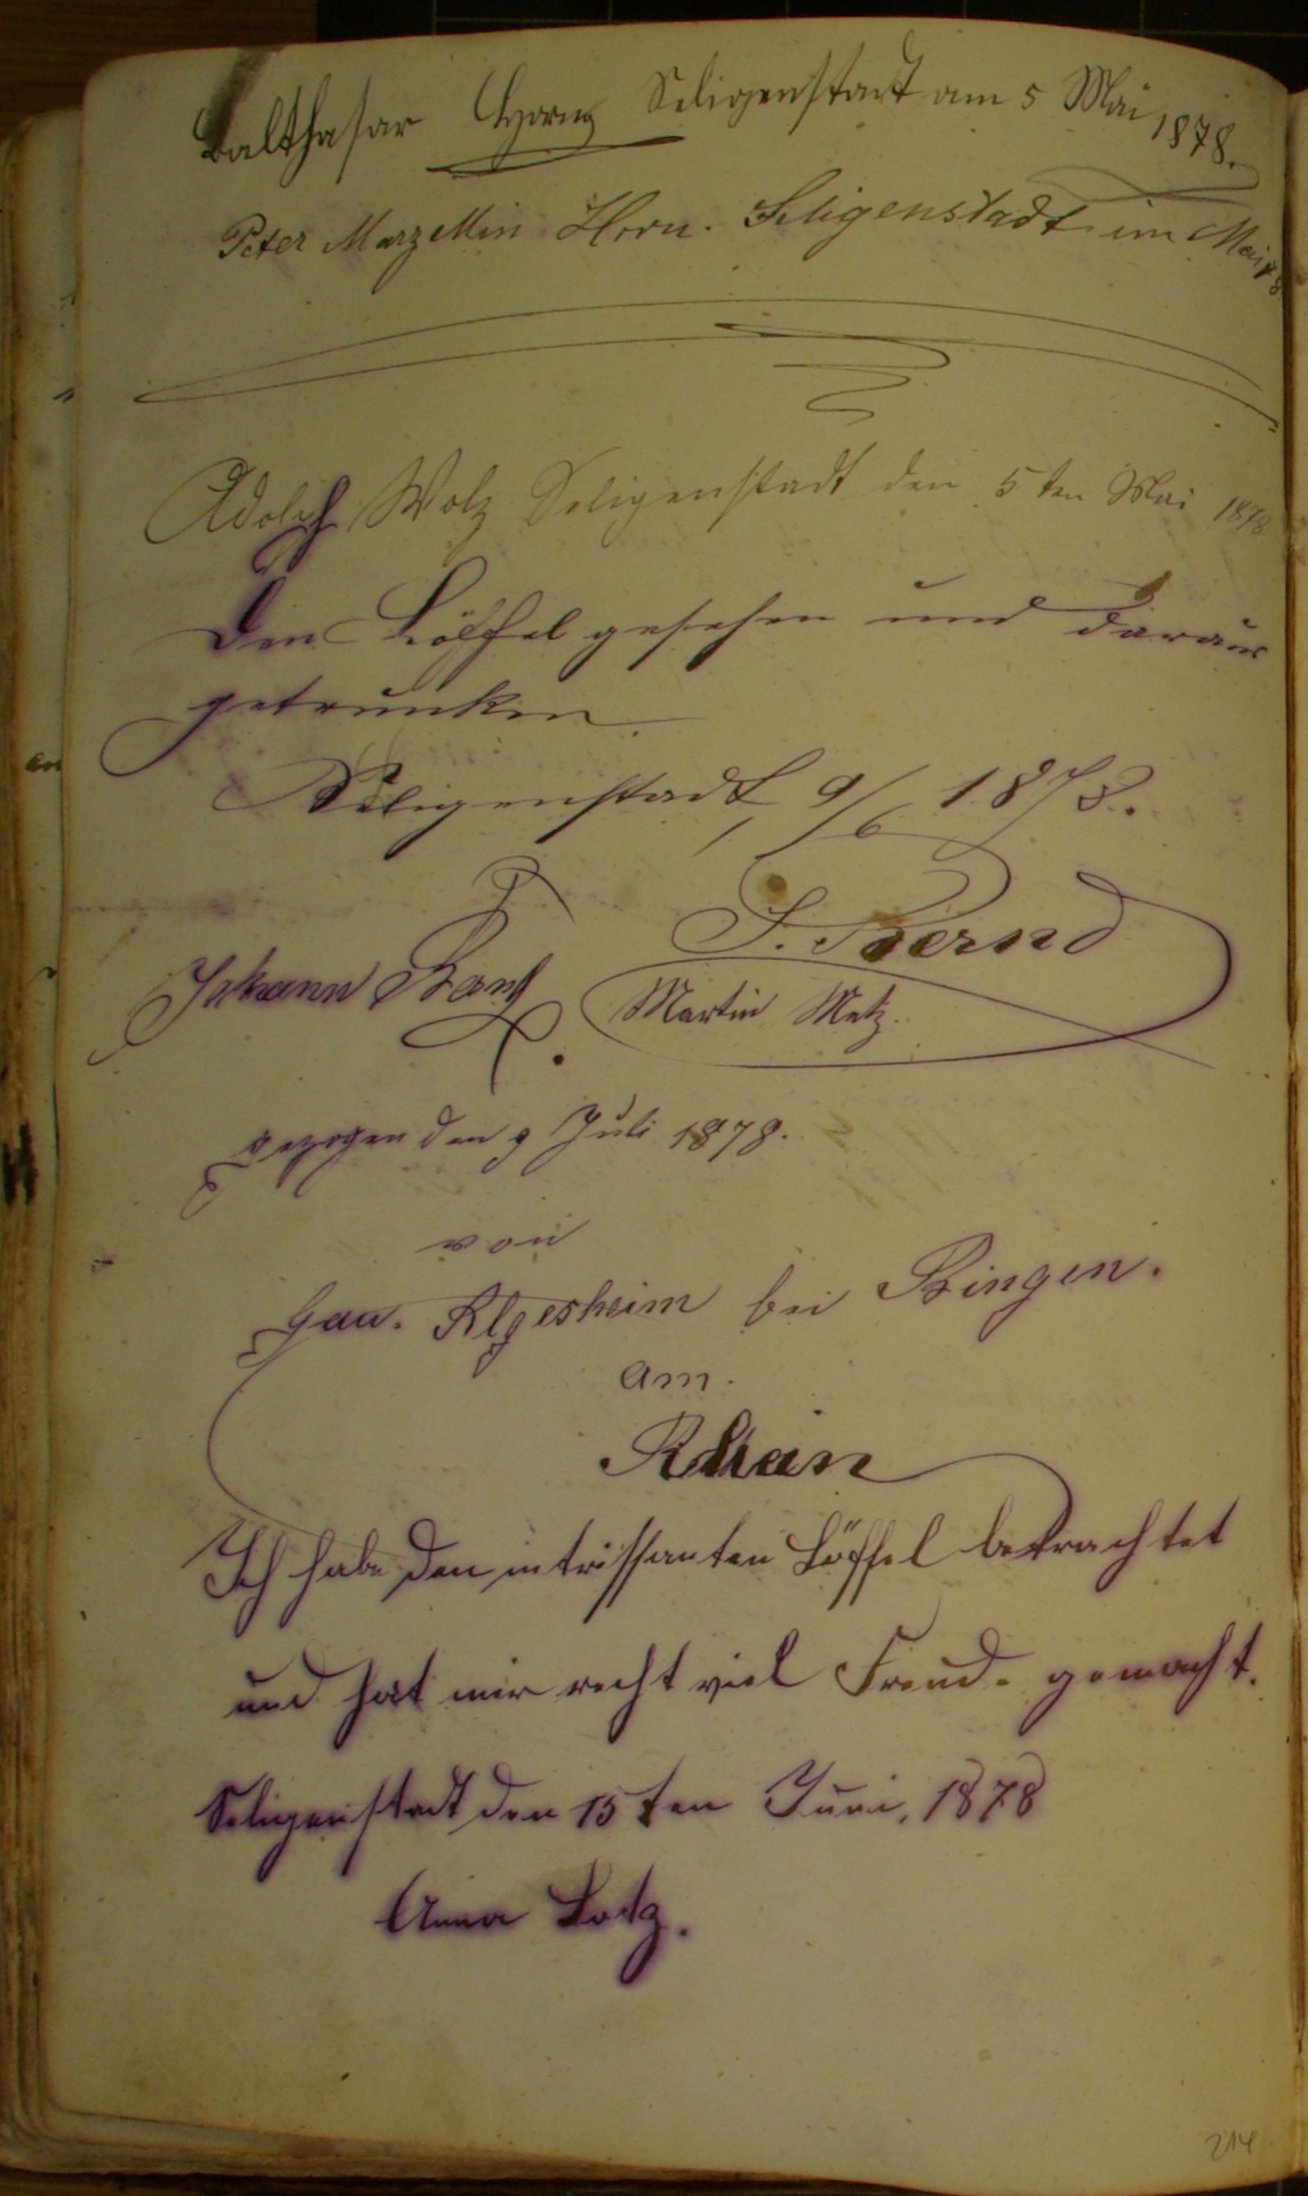 Balthasar Horn Seligenstadt am 5 Mai 1878.
Peter Marzellin Horn. Seligenstadt im Mai 78
Adolph Wolz Seligenstadt den 5ten Mai 1878
Den Löffel gesehen und daraus
getrunken
Seligenstadt, 9/6 1878.
J. Bernd
Johann
Martin Metz.
gezogen den 9 Juli 1878.
von
Gau. Algesheim bei Bingen.
am.
Rhein
Ich habe den intrissanten Löffel betrachtet
und hat mir recht viel Freude gemacht.
Seligenstadt den 15ten Juni, 1878
Anna Lotz.
214